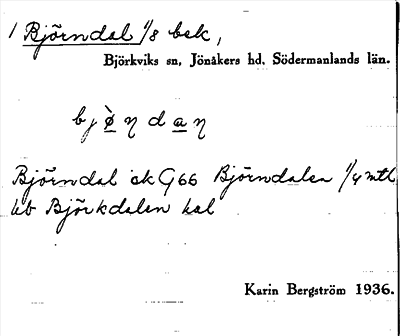 1 Björndal 1/8 bek,
Björkviks sn, Jönåkers hd, Södermanlands län.
bjø̀ŋdaŋ
Björndal äk G66 Björndalen 1/4 mtl
hb Björkdalen kal
Karin Bergström 1936.